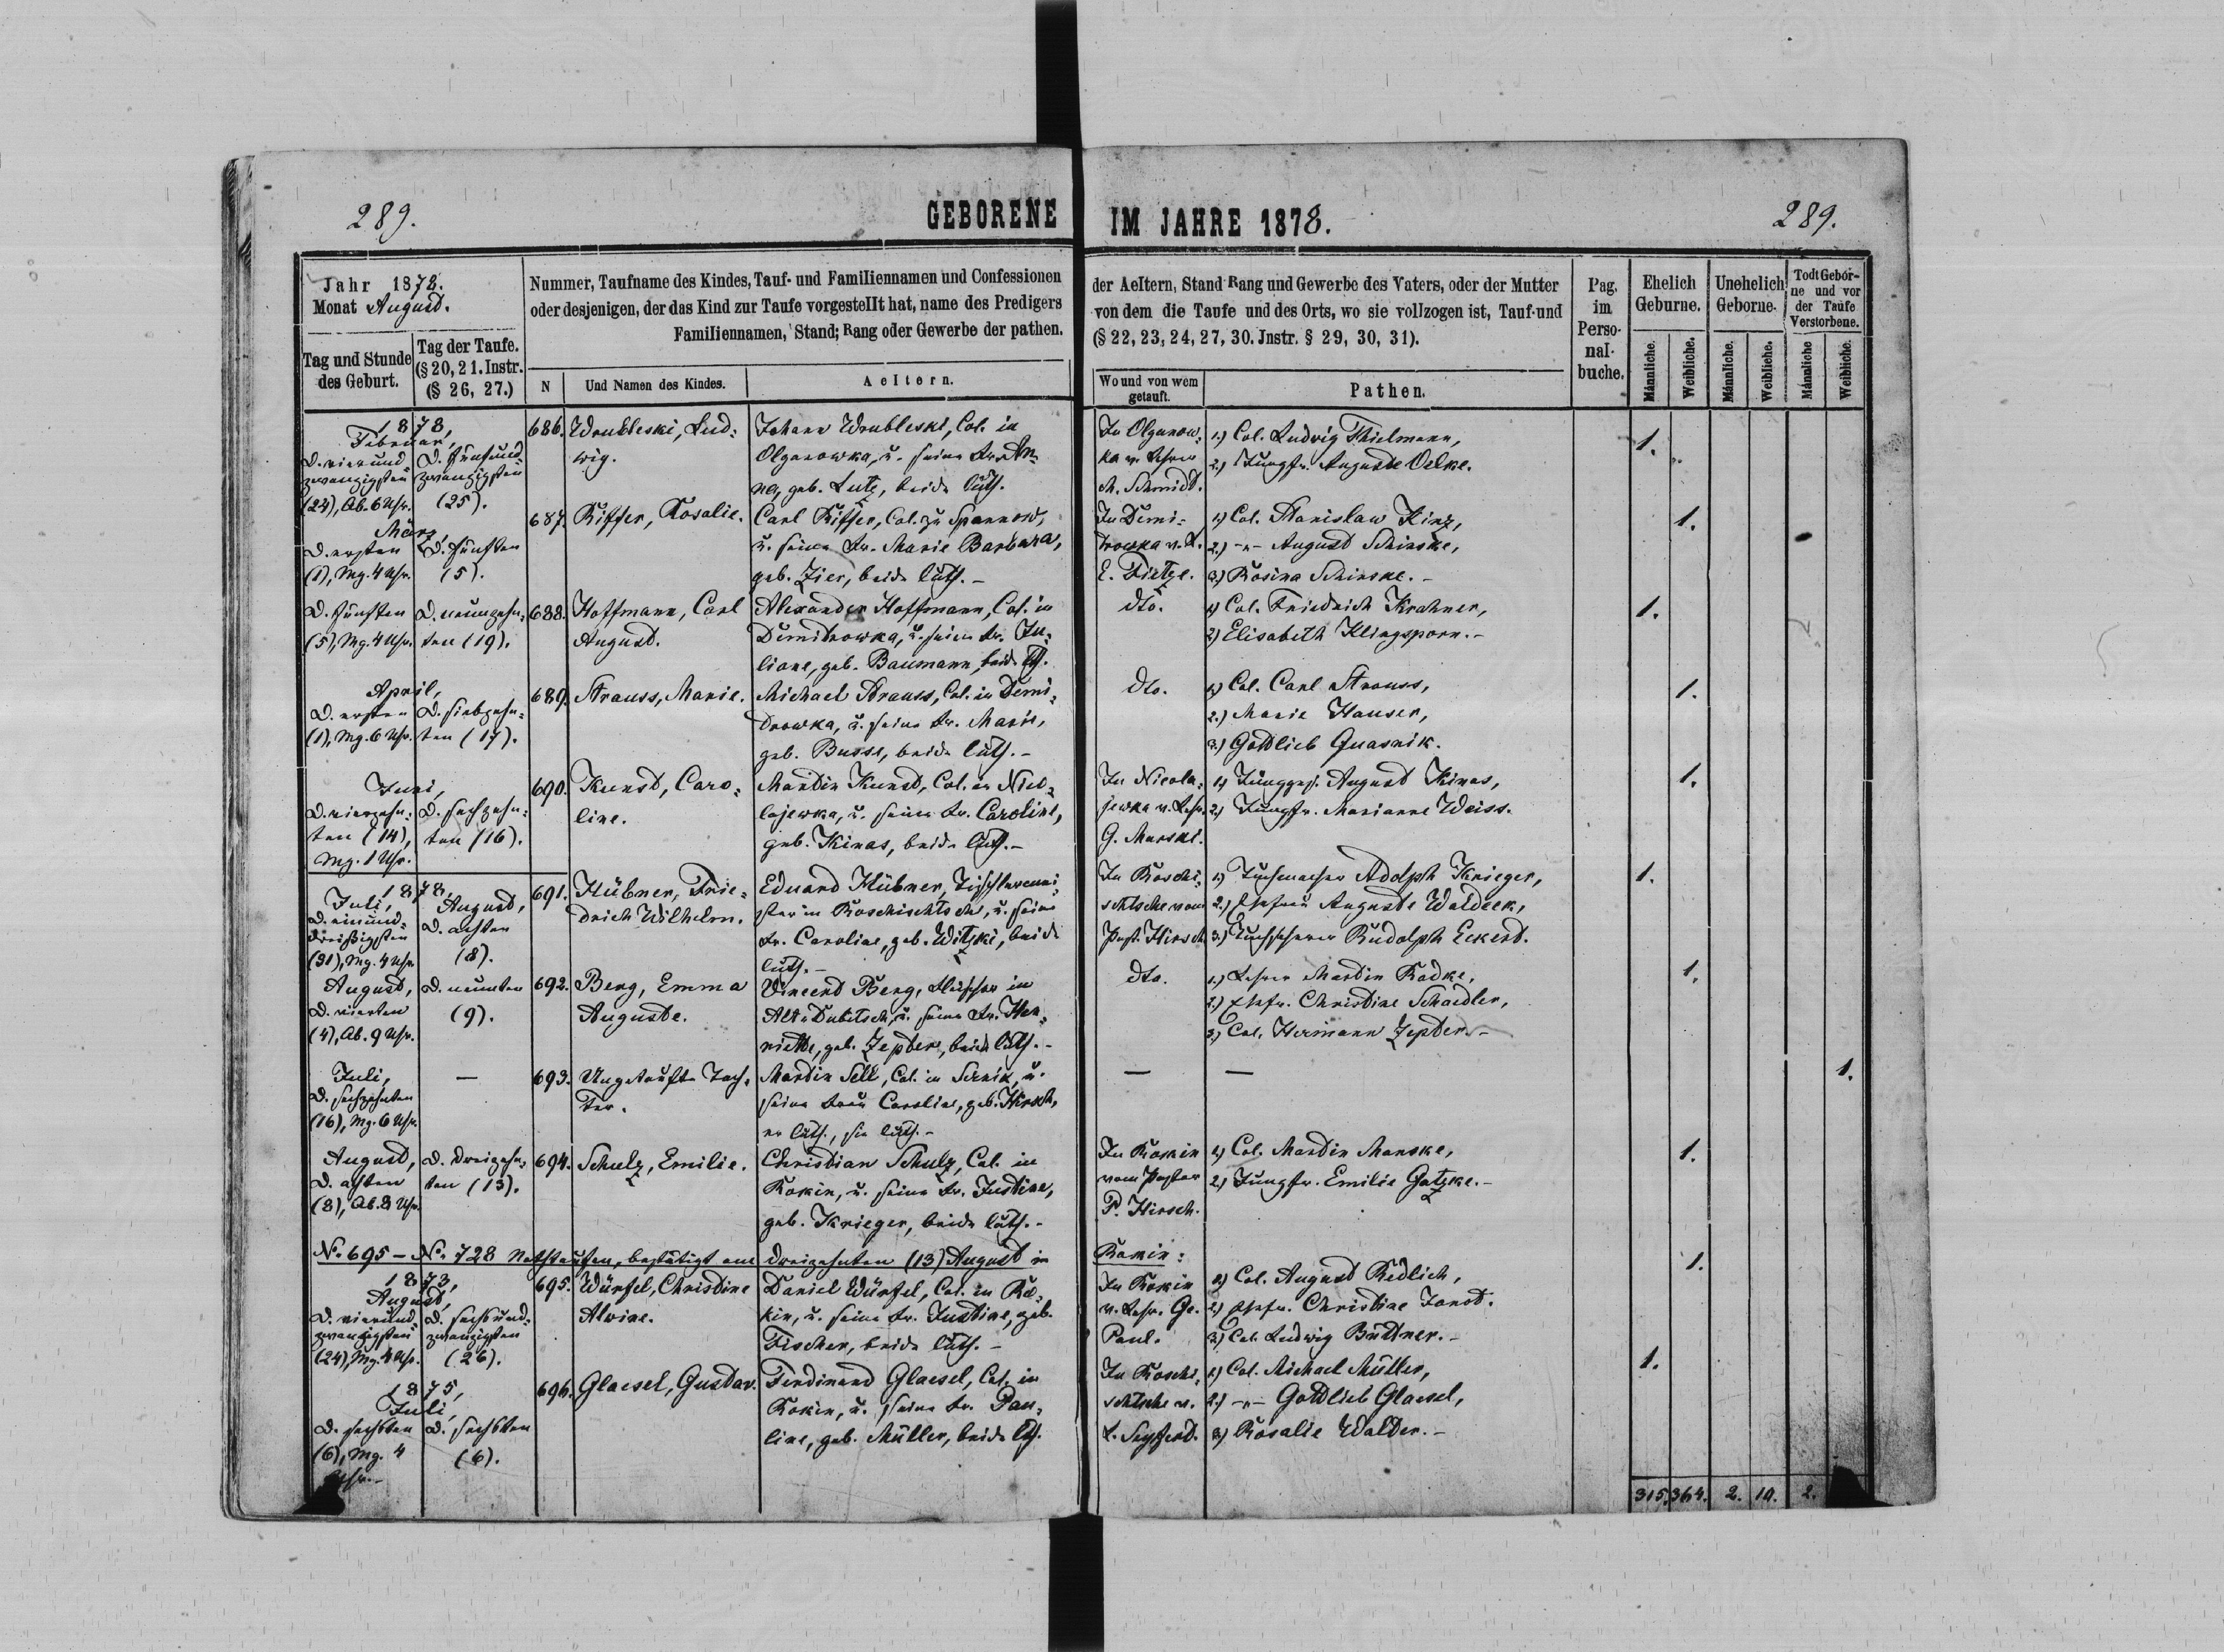 289.
GEBORENE
IM JAHRE 1878.
289.
Jahr 1878.
Monat August.
Tag und Stunde
des Geburt.
Tag der Taufe.
(§ 20, 21. Instr.
(§ 26, 27.)
Nummer, Taufname des Kindes, Tauf- und Familiennamen und Confessionen
oder desjenigen, der das Kind zur Taufe vorgestellt hat, name des Predigers
Familiennamen, Stand; Rang oder Gewerbe der pathen.
N
Und Namen des Kindes.
Aeltern.
der Aeltern, Stand Rang und Gewerbe des Vaters, oder der Mutter
von dem die Taufe und des Orts, wo sie vollzogen ist, Tauf-und
(§ 22, 23, 24, 27, 30. Jnstr. § 29, 30, 31).
Wo und von wem
getauft.
Pathen.
Pag.
im
Perso-
nal-
buche.
Ehelich
Geburne.
Unehelich
Geborne.
Todt Gebor-
ne und vor
der Taufe
Verstorbene.
Männliche.
Weibliche.
Männliche.
Weibliche.
Männliche
Weibliche.
1878,
Februar,
D. vierund-
zwanzigsten
(24), Ab. 6 Uhr.
D. fünfund-
zwanzigsten
(25).
686.
Wrubleski, Lud-
wig.
Johann Wrubleski, Col. in
Olganowka, u. seine Fr. An-
na, geb. Lutz, beide luth.
In Olganow-
ka v. Lehrer
M. Schmidt.
1.) Col. Ludwig Thielmann,
2.) Jungfr. Auguste Oelke.
1.
März,
D. ersten
(1), Mg. 4 Uhr.
D. fünften
(5).
687.
Kiffer, Rosalie.
Carl Kiffer, Col. zu Spannow,
u. seine Fr. Marie Barbara,
geb. Zier, beide luth. –
In Demi-
drowka v. L.
E. Tietze.
1.) Col. Stanislaw Kinz,
2.) -"- August Schinske,
3.) Rosina Schinske. –
1.
D. fünften
(5), Mg. 4 Uhr.
D. neunzehn-
ten (19).
688.
Hoffmann, Carl
August.
Alexander Hoffmann, Col. in
Demidrowka, u. seine Fr. Ju-
liane, geb. Baumann, beide lth.
dto.
1) Col. Friedrich Krahner,
2) Elisabeth Klingsporn. –
1.
April,
D. ersten
(1), Mg. 6 Uhr.
D. siebzehn-
ten (17).
689.
Strauss, Marie.
Michael Strauss, Col. in Demi-
drowka, u. seine Fr. Marie,
geb. Busse, beide luth. –
dto.
1) Col. Carl Strauss,
2.) Marie Hauser,
3.) Gottlieb Quasnik.
1.
Juni,
D. vierzehn-
ten (14),
Mg. 1 Uhr.
D. sechzehn-
ten (16).
690.
Kunst, Caro-
line.
Martin Kunst, Col. in Nico-
lajewka, u. seine Fr. Caroline,
geb. Kinas, beide luth. –
In Nicola-
jewka v. Lehr.
G. Manski.
1.) Junggeß. August Kinas,
2.) Jungfr. Marianne Weiss.
1.
1878,
Juli,
D. einund-
dreißigsten
(31), Mg. 4 Uhr.
August,
D. achten
(8).
691.
Hübner, Frie-
drich Wilhelm.
Eduard Hübner, Tischlermei-
ster in Roschischtsche, u. seine
Fr. Caroline, geb. Witzki, beide
luth. –
In Roschi-
schtsche vom
Past. Hirsch
1.) Tuchmacher Adolph Krieger,
2.) Ehefrau Auguste Waldeck,
3.) Tuchscherer Rudolph Eckert.
1.
August,
D. vierten
(4), Ab. 9 Uhr.
D. neunten
(9).
692.
Berg, Emma
Auguste.
Vincent Berg, Fleischer in
Alt-Dubitsch, u. seine Fr. Hen-
riette, geb. Zepter, beide luth. –
dto.
1.) Lehrer Martin Radke,
2.) Ehefr. Christine Schaedler,
3.) Col. Hermann Zepter. –
1.
Juli,
D. sechzehnten
(16), Mg. 6 Uhr.
—
693.
Ungetaufte Toch-
ter.
Martin Sell, Col. in Sernik, u.
seine Frau Caroline, geb. Hirsch,
er luth., sie luth. –
—
—
1.
August,
D. achten
(8), Ab. 8 Uhr.
D. dreizehn-
ten (13).
694.
Schulz, Emilie.
Christian Schulz, Col. in
Rokin, u. seine Fr. Justine,
geb. Krieger, beide luth. –
In Rokin
vom Pastor
P. Hirsch.
1) Col. Martin Manske,
2.) Jungfr. Emilie Gatzke. –
1.
No. 695 – No. 728 Nothtaufen, bestätigt am dreizehnten (13) August in Rokin:
1873,
August,
D. vierund-
zwanzigsten
(24), Mg. 4 Uhr.
D. sechsund-
zwanzigsten
(26).
695.
Würfel, Christine
Alwine.
Daniel Würfel, Col. in Ro-
kin, u. seine Fr. Justine, geb.
Fischer, beide luth. –
In Rokin
v. Lehr. Ge.
Paul.
1.) Col. August Redlich,
2.) Ehefr. Christine Janot.
3.) Col. Ludwig Büttner. –
1.
1875,
Juli,
D. sechsten
(6), Mg. 4
Uhr. –
D. sechsten
(6).
696.
Glaesel, Gustav.
Ferdinand Glaesel, Col. in
Rokin, u. seine Fr. Pau-
line, geb. Müller, beide lth.
In Roschi-
schtsche v.
L. Seyfert.
1.) Col. Michael Müller,
2.) -"- Gottlieb Glaesel,
3.) Rosalie Walter. –
1.
315. 364. 2. 10. 2.